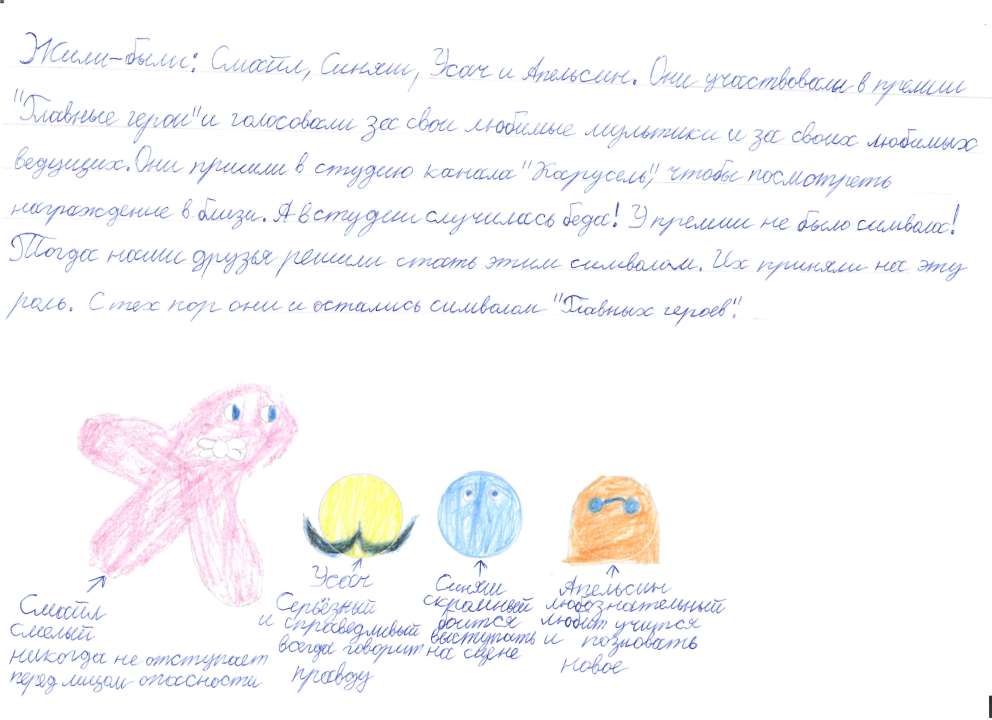 Жили-были: Смайл, Синяш, Усач и Апельсин. Они участвовали в премии
"Главные герои" и голосовали за свои любимые мультики и за своих любимых
ведущих. Они пришли в студию канала "Карусель", чтобы посмотреть
награждение в близи. А в студии случилась беда! У премии не было символа!
Тогда наши друзья решили стать этим символом. Их приняли на эту
роль. С тех пор они и остались символом "Главных героев".
Смайл
смелый
никогда не отступает
перед лицом опасности
Усач
Серьёзный
и справедливый
всегда говорит
правду
Синяш
скромный
боится
выступать
на сцене
Апельсин
любознательный
любит учится
и позновать
новое